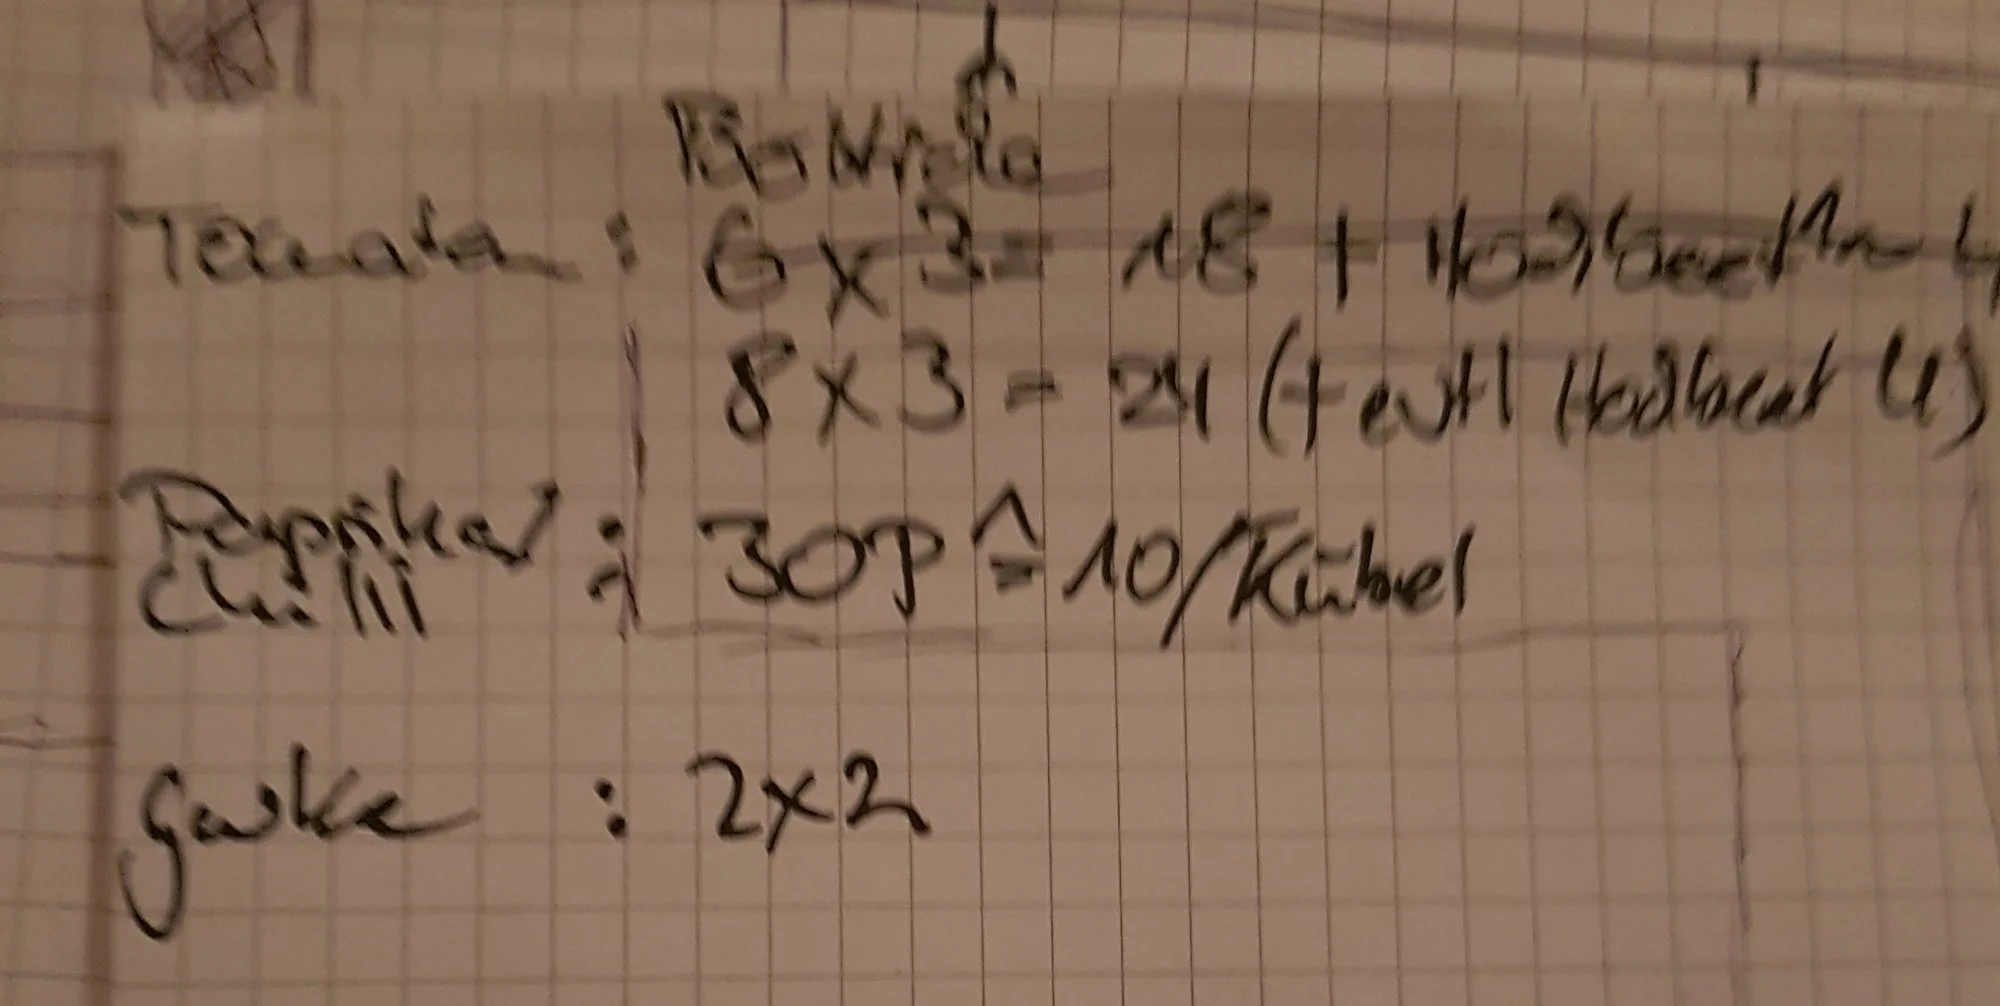 Tomaten : 6 x 3 = 18 + Hochbeet 4
8 x 3 = 24 (+ evtl Hochbeet 4)
Paprika/ : 30P ≙ 10/Kübel
Chilli
Gurke : 2x2